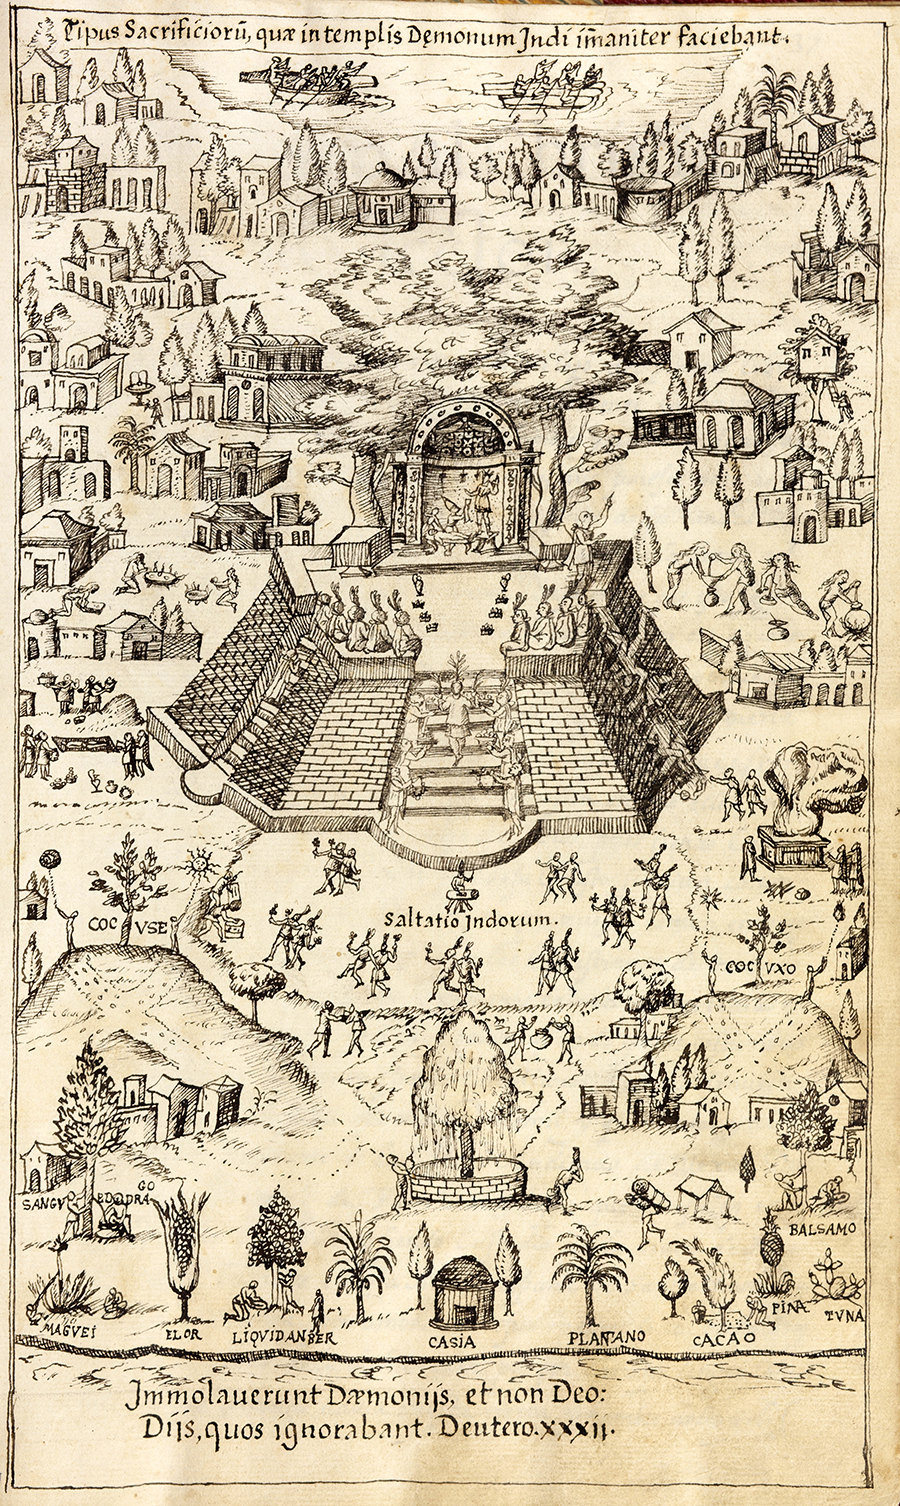 Tipus Sacrificiorũ, quæ in templis Dęmonum Indi im̃aniter faciebant.
COC VSE
Saltatio Indorum.
COC VXO
SANGV E D DRAGO
BALSAMO
MAGVEI
ELOR
LIQVIDANBER
CASIA
PLANTANO
CACAO
PINA
TVNA
Immolauerunt Dæmonijs, et non Deo:
Dijs, quos ignorabant. Deutero.xxxii.